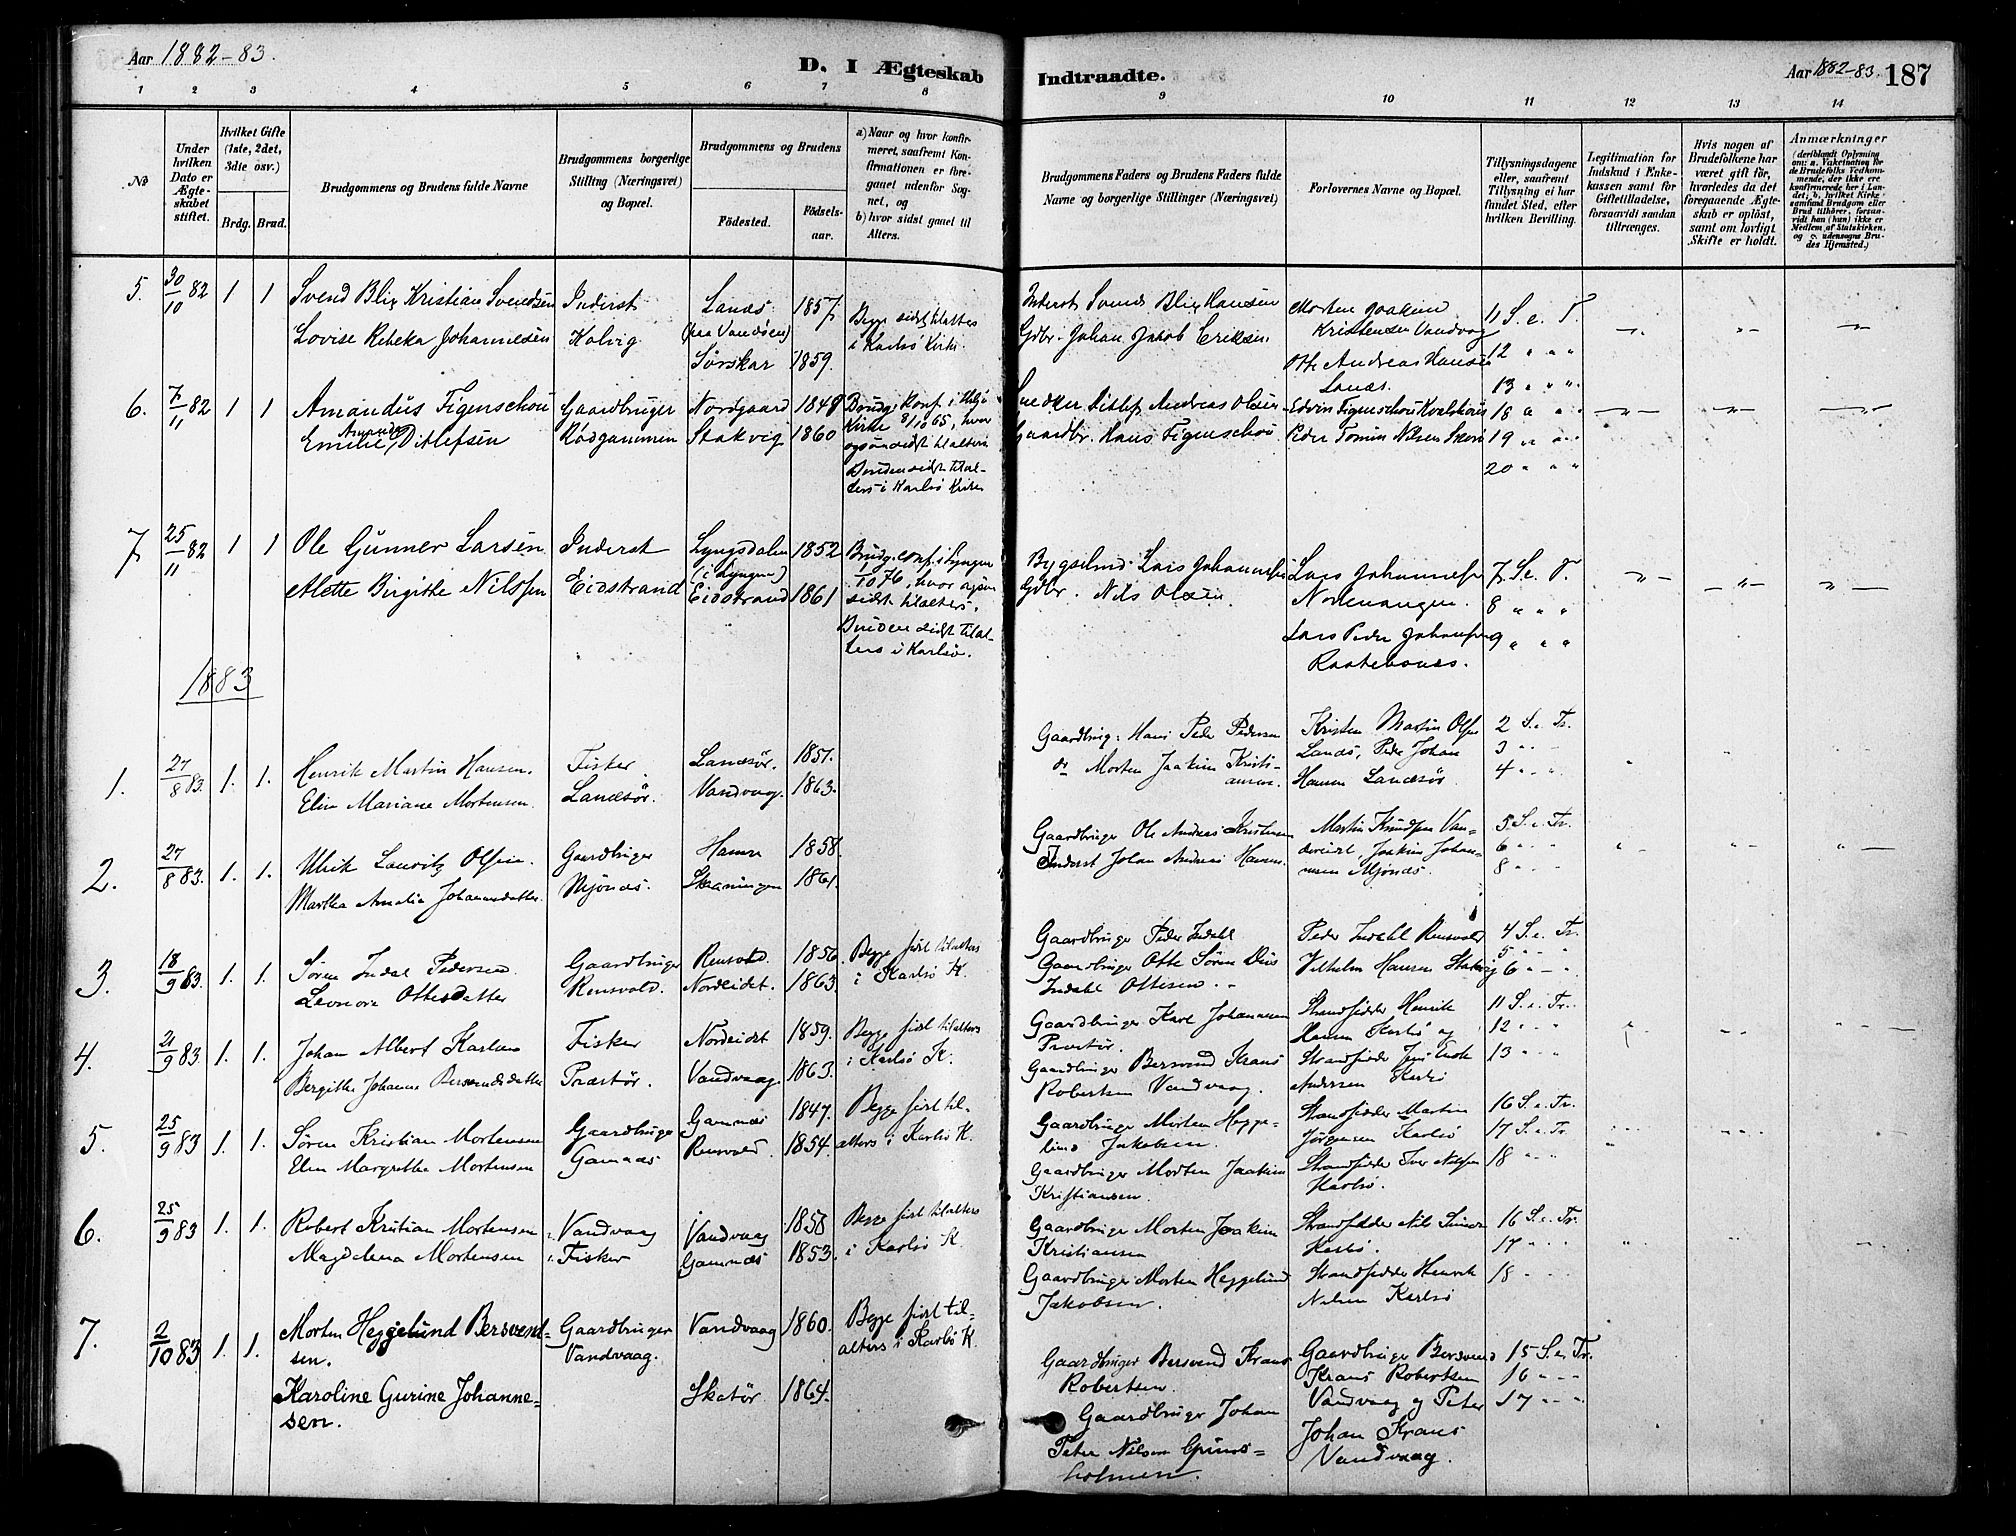 Aar 1882-83.
D. I Ægteskab Indtraadte.
Aar 1882-83. 187
1 2 3 4 5 6 7 8 9 10 11 12 13 14
No
Under hvilken Dato er Ægteskabet stiftet.
Hvilket Gifte (1ste, 2det, 3die osv.)
Brdg. Brud.
Brudgommens og Brudens fulde Navne
Brudgommens borgerlige Stilling (Næringsvei) og Bopæl.
Brudgommens og Brudens
Fødested.
Fødselsaar.
a) Naar og hvor konfirmeret, saafremt Konfirmationen er foregaaet udenfor Sognet, og
b) hvor sidst gaaet til Alters.
Brudgommens Faders og Brudens Faders fulde Navne og borgerlige Stillinger (Næringsvei)
Forlovernes Navne og Bopæl.
Tillysningsdagene eller, saafremt Tillysning ei har fundet Sted, efter hvilken Bevilling.
Legitimation for Indskud i Enkekassen samt for Giftetilladelse, forsaavidt saadan tiltrænges.
Hvis nogen af Brudefolkene har været gift før, hvorledes da det foregaaende Ægteskab er opløst, samt om lovligt Skifte er holdt.
Anmærkninger
(deriblandt Oplysning om: a. Vakcination for de Brudefolks Vedkommende, der ikke ere konfirmerede her i Landet; b. hvilket Kirkesamfund Brudgom eller Brud tilhører, forsaavidt han (hun) ikke er Medlem af Statskirken, og c. udensogns Brudes Hjemsted.)
5. 30/10 82 1 1 Svend Blix Kristian Svendsen Inderst Lanæs 1857 Begge sidst tilalters
(paa Vandöen)
Lovise Rebeka Johannesen Kalvig Sørskar 1859. i Karlsö Kirke.
Inderst Svend Blix Hansen Morten Joakim 11 S. e. T
Gdbr. Johan Jakob Eriksen. Kristensen Vandvag 12 " " "
Otto Andreas Hansen Lanæs. 13 " " "
6. 7/11 82 1 1 Amandus Figenschou Gaardbruger Nordgaard 1848
Emilie Amanda Ditlefsen Rødgammen Stakvig 1860
Brudg. konf. i
Kirke 8/10 65, hvor
ogsaa sidst tilalters
Bruden sidst tilalters i Karlsö Kirke
Snedker Ditlef Andreas Olsen Edvin Figenschou 18 " " "
Gaardbr. Hans Figenschou Peder Tomin Nilsen 19 " " "
20 " " "
7 25/11 82 1 1 Ole Gunner Larsen Inderst Lyngsdalen 1852
(i Lyngen)
Alette Birgithe Nilsen Eidstrand Eidstrand 1861
Brudg. conf. i Lyngen
1/10 76, hvor ogsaa
sidst tilalters.
Bruden sidst tilalters i Karlsö.
Bygselmd. Lars Johannesen Lars Johannesen 7 S. e. T.
Gdbr. Nils Olsen Nordmangen. 8 " " "
Lars Peder Johansen 9 " " "
1883
1. 27/8 83. 1. 1. Henrik Martin Hansen. Fisker Lanæsör. 1857.
Elin Mariane Mortensen. Lanæsör. Vandvaag. 1863.
Gaardbrug. Hans Peder Pedersen Kristen Martin Olsen 2 S. e. Tr.
do Morten Joakim Kristiansen. Lanæs, Peder Johan 3 " "
Hansen Lanæsör 4 " "
2. 27/8 83. 1. 1. Ulrik Lauritz Olsen. Gaardbruger Hamre 1858.
Martha Amalia Johannesdatter Mjönæs. Skaaningen 1861.
Gaardbruger Ole Andreas Kristensen Martin Knudsen Vandereidet, 5 S. e. Tr.
Inderst Johan Andreas Hansen Joakim Johannesen Mjönæs. 6 " "
8 " "
3. 18/9 83. 1. 1. Sören Indal Pedersen. Gaardbruger Rensvold. 1856. Begge sidst tilalters
Leonora Ottesdatter Rensvold. Nordeidet. 1863. i Karlsö K.
Gaardbruger Peder Indahl Peder Indahl Rensvold 4 S. e. Tr.
Gaardbruger Otto Sören Dius Vilhelm Hansen Stakvig 5 " "
Indahl Ottesen. 6 " "
4. 21/9 83. 1. 1. Johan Albert Karlsen Fisker Nordeidet 1859. Begge sidst tilalters
Bergithe Johanna Bersvendsdatter Præstör. Vandvaag. 1863. i Karlsö K.
Gaardbruger Karl Johannesen Strandsidder Henrik 11 S. e. Tr.
Præstör. Hansen Karlsö og 12 " "
Gaardbruger Bersvend Kraus Strandsidder Jens 13 " "
Robertsen Vandvaag. Andersen Karlsö
5. 25/9 83 1. 1. Sören Kristian Mortensen Gaardbruger Gamnæs 1847. Begge sidst til-
Elen Margrethe Mortensen Gamnæs Rensvold. 1854. alters i Karlsö K.
Gaardbruger Morten Heggelund Jakobsen. Strandsidder Martin Jörgensen Karlsö 16 S. e. Tr.
17 S. e. Tr.
Gaardbruger Morten Joakim Kristiansen. Strandsidder Iver Nilsen Karlsö. 18 " "
6. 25/9 83 1. 1. Robert Kristian Mortensen Vandvaag Vandvaag 1858 Begge sidst tilalters
Magdalena Mortensen Fisker Gamnæs 1853. i Karlsö K.
Gaardbruger Morten Joakim Kristiansen Strandsidder Nils Karlsö. 16 S. e. Tr.
17 " "
Gaardbruger Morten Heggelund Jakobsen. Strandsidder Henrik Nilsen Karlsö 18 " "
7. 2/10 83 1. 1. Morten Heggelund Bersvendsen. Gaardbruger Vandvaag 1860. Begge sidst til-
Vandvaag. alters i Karlsö K.
Karoline Gurine Johannesen. Skatör 1864.
Gaardbruger Bersvend Kraus Robertsen. Gaardbruger Bersvend Kraus Robertsen 15 S. e. Tr.
16 " "
Gaardbruger Johan Peter Nilsen Grunsholmen. Vandvaag og Peter Johan Kraus Vandvaag. 17 " "